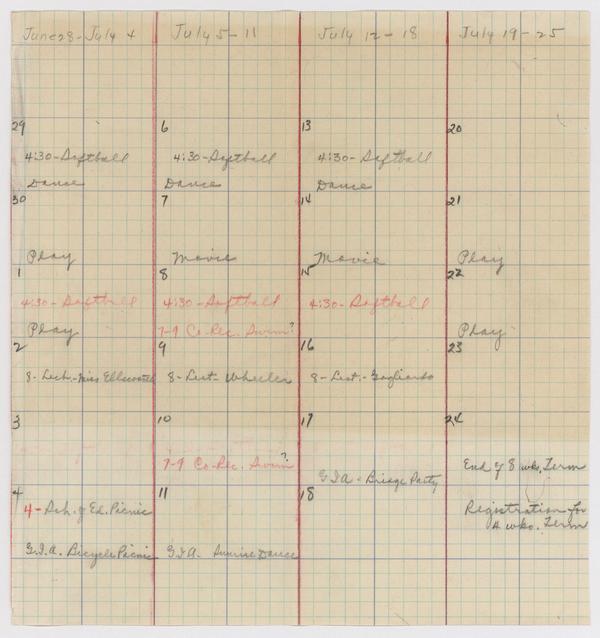 June 28 - July 4
July 5 - 11
July 12 - 18
July 19 - 25
29
4:30 - Softball
Dance
6
4:30 - Softball
Dance
13
4:30 - Softball
Dance
20
30
Play
7
Movie
14
Movie
21
Play
1
4:30 - Softball
Play
8
4:30 - Softball
7-9 Co-Rec. Swim?
15
4:30 - Softball
22
Play
2
8 - Lect. - Miss Ellwood
9
8 - Lect - Wheeler
16
8 - Lect. - Gagliardo
23
3
10
7-9 Co-Rec. Swim?
17
G.I.A. - Bridge Party
24
End of 8 wks. Term
Registration for
4 wks. Term
4
4 - Sch. of Ed. Picnic
G.I.A. Bicycle Picnic
11
G.I.A. Sunrise Dance
18